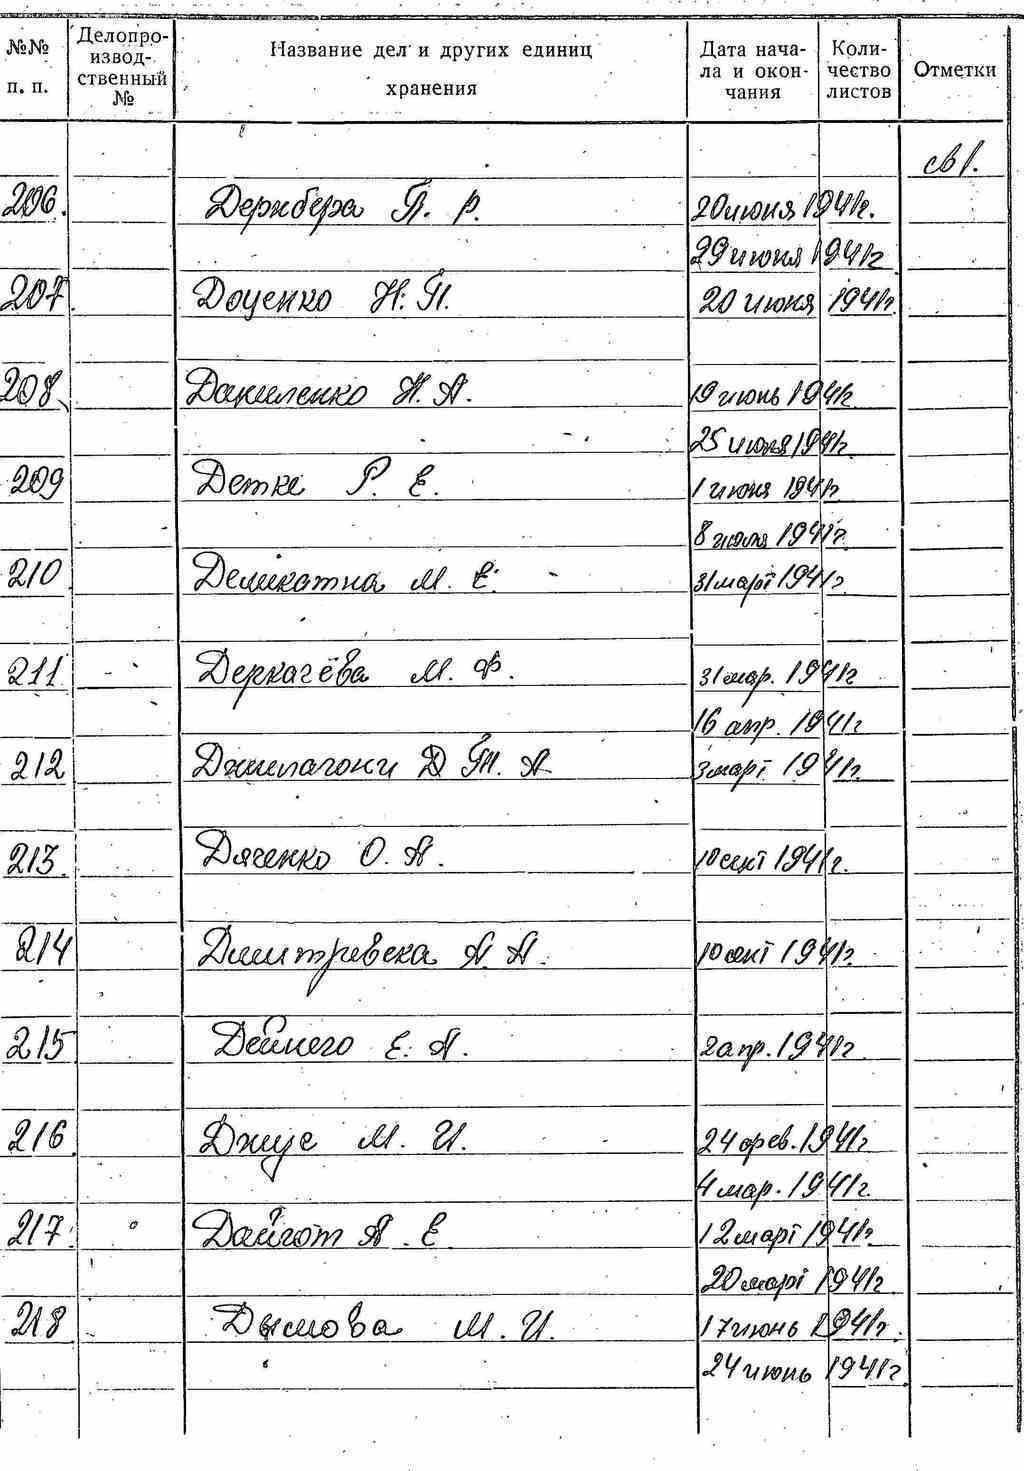 №№ п. п. Делопроизводственный № Название дел и других единиц хранения Дата начала и окончания Количество листов Отметки
св 1.
206. Держбера П. Р. 20 июня 1941г.
29 июня 1941г
207. Доценко Н. П. 20 июня 1941г.
208. Даниленко Н. А. 19 июнь 1941г.
25 июля 1941г.
209 Детке Р. Е. 1 июня 1941г.
8 июля 1941г.
210 Деликатна М. Е. 31 март 1941г.
211 Деркачёва М. Ф. 31 мар. 1941г
16 апр. 1941г
212 Джилагони Д. А. 3 март 1941г.
213. Дяченко О. А. 10 сент 1941г.
214 Димитревска А. А. 10 сент 1941г.
215 Дейнего Е. А. 2 апр. 1941г
216 Джус М. И. 24 фев. 1941г
4 мар. 1941г.
217. Дайгот А. Е 12 март 1941г.
20 март 1941г
218 Дымова М. И. 17 июнь 1941г.
24 июнь 1941г.